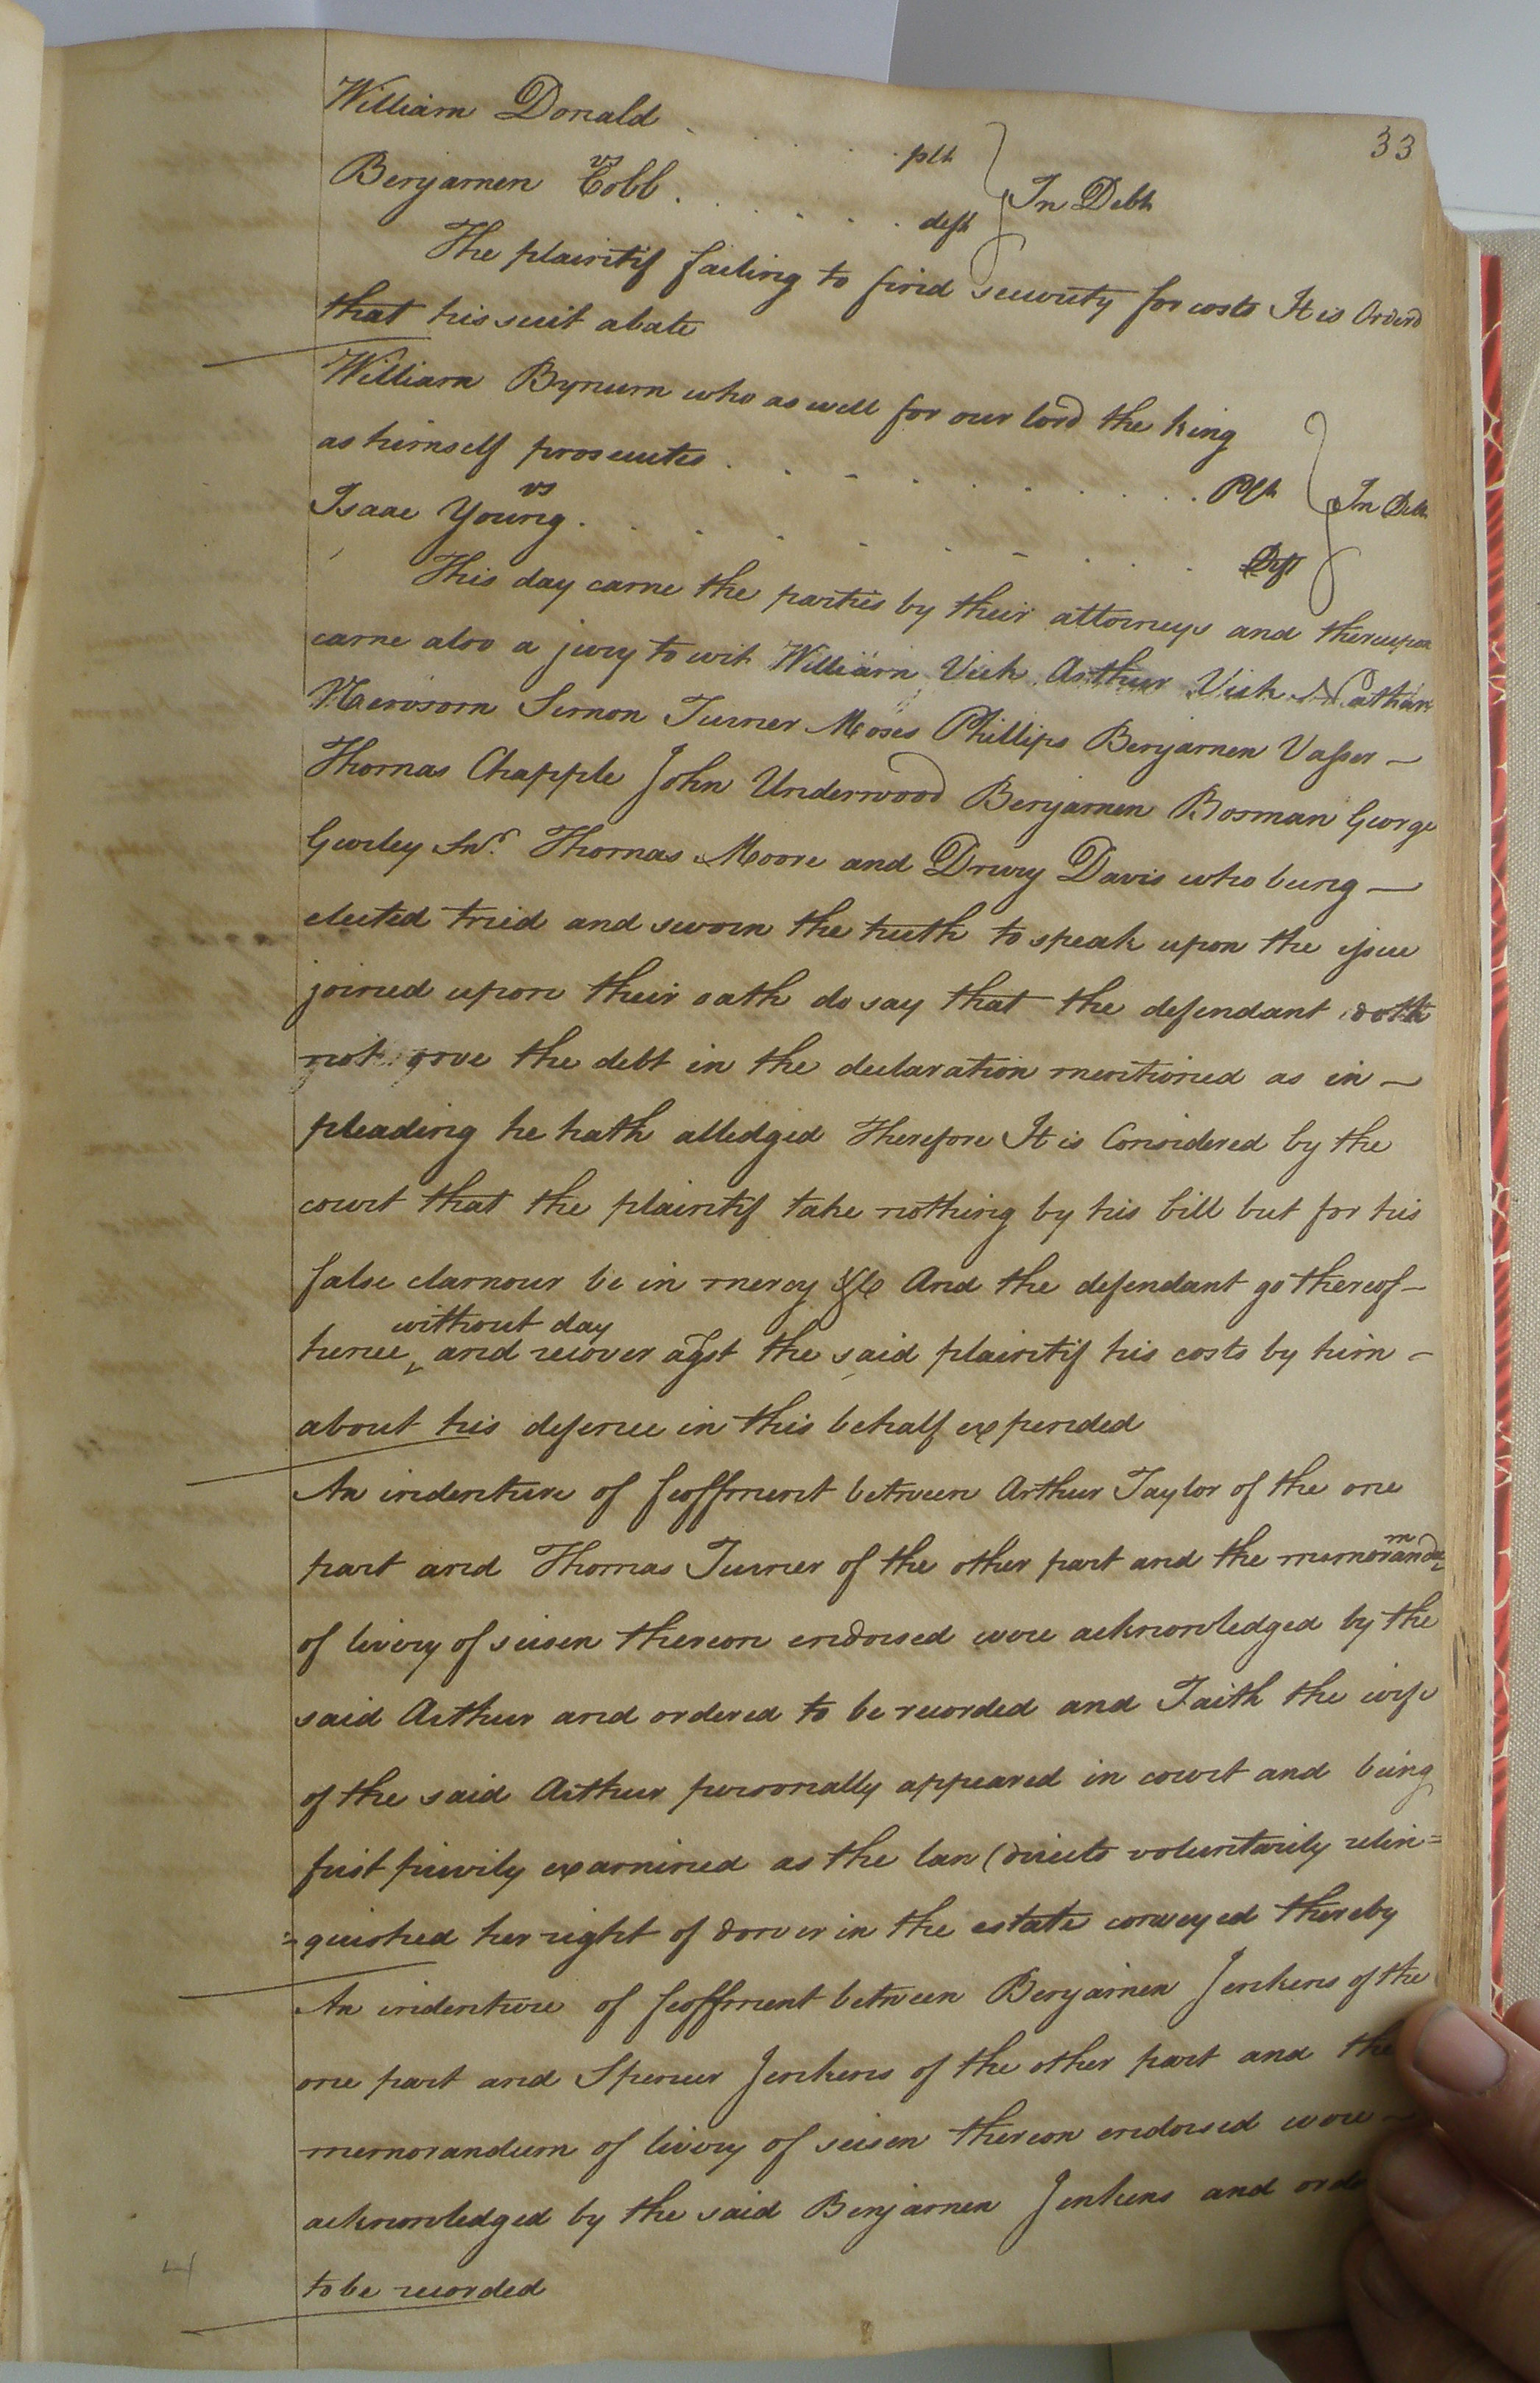 33
William Donald . . . . . plt
vs
In Debt
Benjamen Cobb . . . . . deft
The plaintif failing to find security for costs It is Orderd
that his suit abate
William Bynum who as well for our lord the king
as himself prosecutes . . . . . . . . Plt
vs
In Debt
Isaac Young . . . . . . . . Deft
This day came the parties by their attorneys and thereupon
came also a jury to wit William Vick Arthur Vick Nathan
Newsom Simon Turner Moses Phillips Benjamen Vasser —
Thomas Chapple John Underwood Benjamen Bosman George
Gurley Jnr. Thomas Moore and Drury Davis who being —
elected tried and sworn the truth to speak upon the issue
joined upon their oath do say that the defendant doth
not owe the debt in the declaration mentioned as in —
pleading he hath alledged Therefore It is Considered by the
court that the plaintif take nothing by his bill but for his
false clamour be in mercy &c And the defendant go thereof —
without day
hence ‸ and recover agst the said plaintif his costs by him —
about his defence in this behalf expended
An indenture of feoffment between Arthur Taylor of the one
part and Thomas Turner of the other part and the memorandum
of livery of seisen thereon endorsed were acknowledged by the
said Arthur and ordered to be recorded and Faith the wife
of the said Arthur personally appeared in court and being
first privily examined as the law directs voluntarily relin=
=quished her right of dower in the estate conveyed thereby
An indenture of feoffment between Benjamen Jenkens of the
one part and Spencer Jenkens of the other part and the
memorandum of livery of seisen thereon endorsed were —
acknowledged by the said Benjamen Jenkens and orde
to be recorded
4